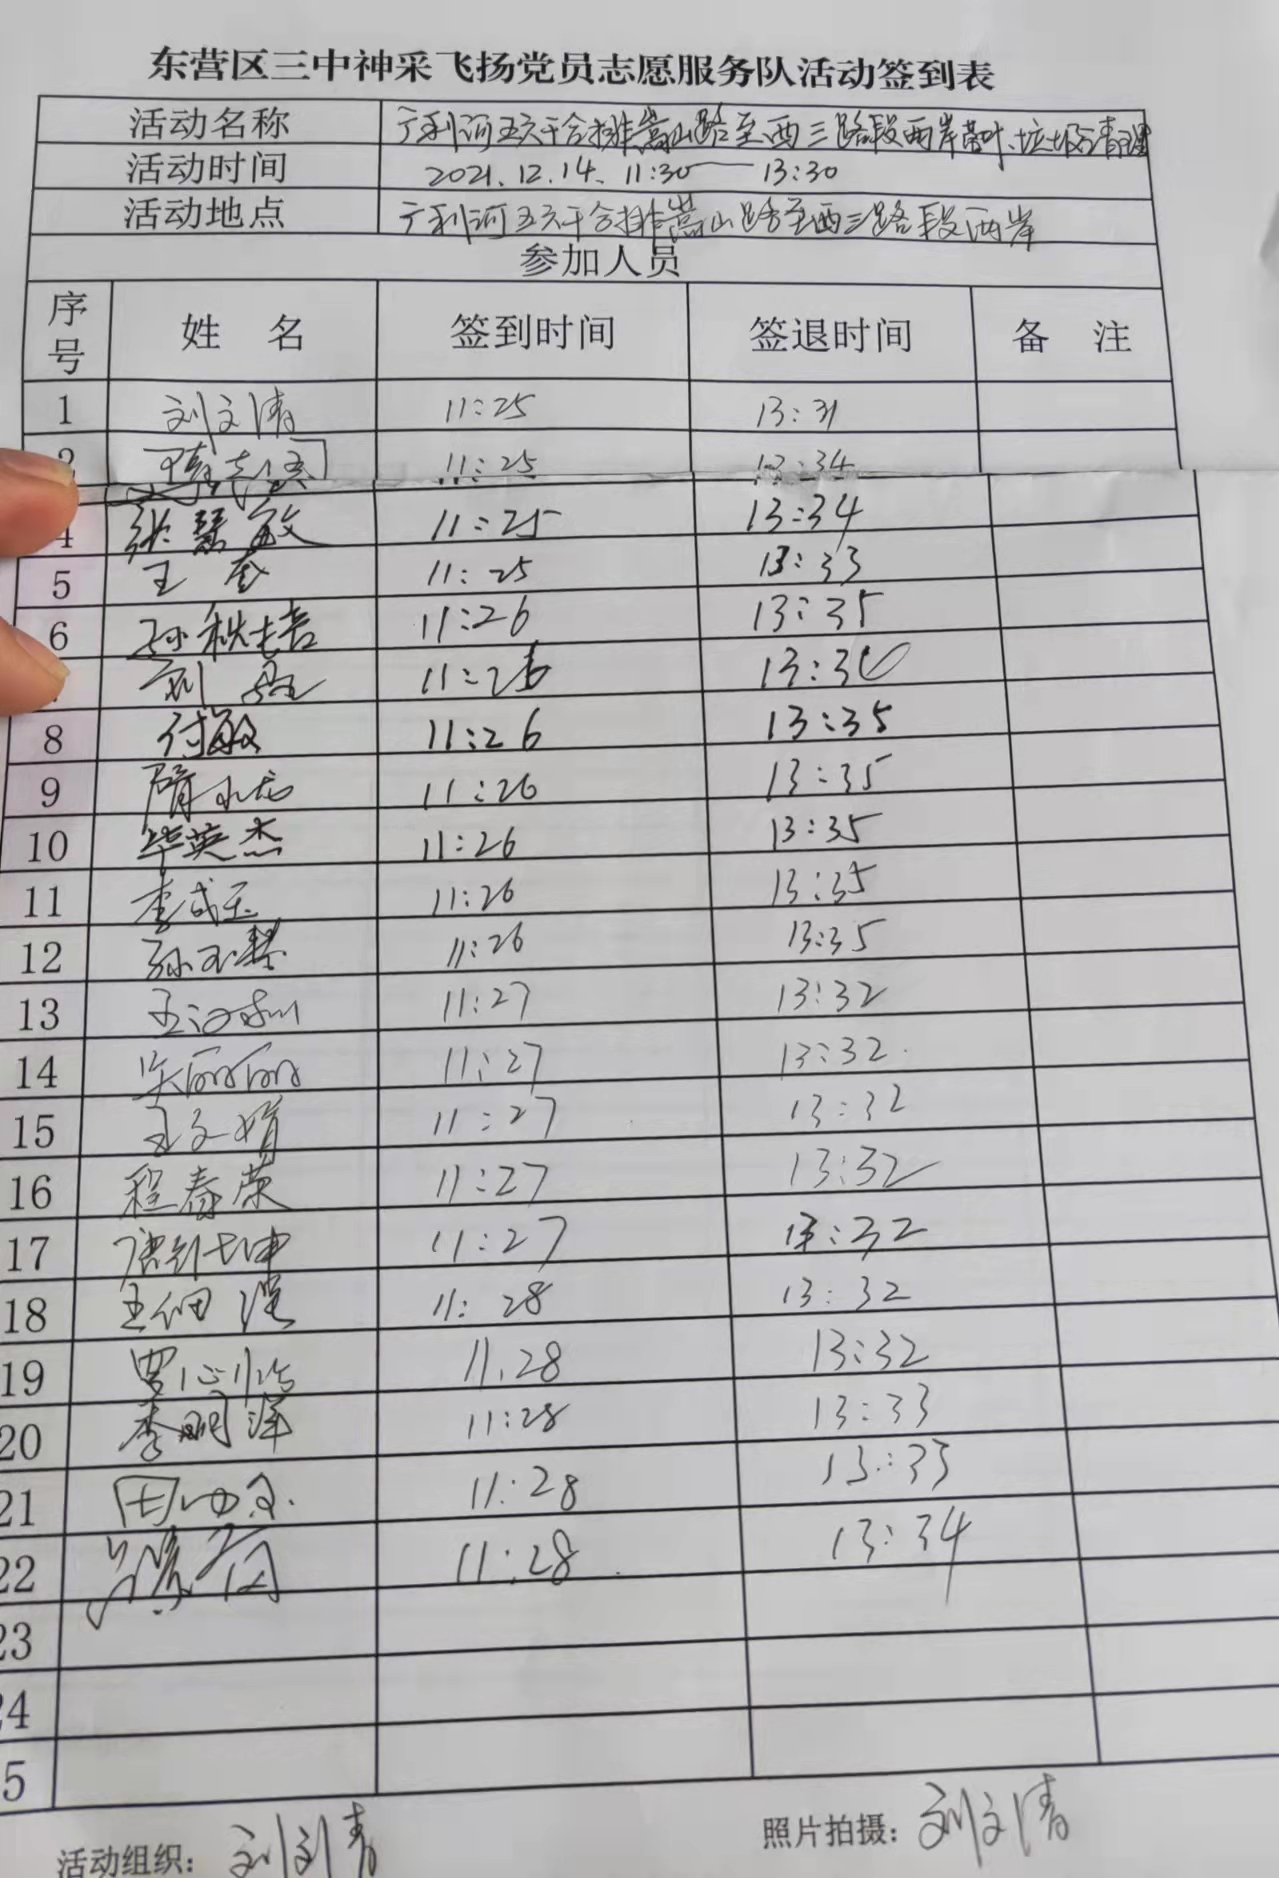 东营区三中神采飞扬党员志愿服务队活动签到表
活动名称 广利河五六干合排嵩山路至西三路段两岸落叶、垃圾清理
活动时间 2021.12.14. 11:30——13:30
活动地点 广利河五六干合排嵩山路至西三路段两岸
参加人员
序号 姓 名 签到时间 签退时间 备 注
1 刘文清 11:25 13:31
2 11:25 13:34
4 张慧敏 11:25 13:34
5 王奎 11:25 13:33
6 孙秋喆 11:26 13:35
刘 11:26 13:36
8 付敏 11:26 13:35
9 隋永龙 11:26 13:35
10 毕英杰 11:26 13:35
11 李成玉 11:26 13:35
12 孙玉琴 11:26 13:35
13 王 11:27 13:32
14 吴丽丽 11:27 13:32
15 王文娟 11:27 13:32
16 程春荣 11:27 13:32
17 唐 坤 11:27 13:32
18 王佃滨 11:28 13:32
19 罗心怡 11.28 13:32
20 李明洋 11:28 13:33
21 田 11:28 13:33
22 11:28 13:34
23
24
5
活动组织: 刘刘青 照片拍摄: 刘文清